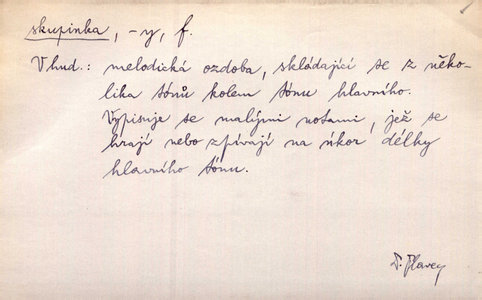 skupinka, -y, f.
V hud.: melodická ozdoba, skládající se z něko-
lika tónů kolem tónu hlavního.
Vypisuje se malými notami, jež se
hrají nebo zpívají na úkor délky
hlavního tónu.